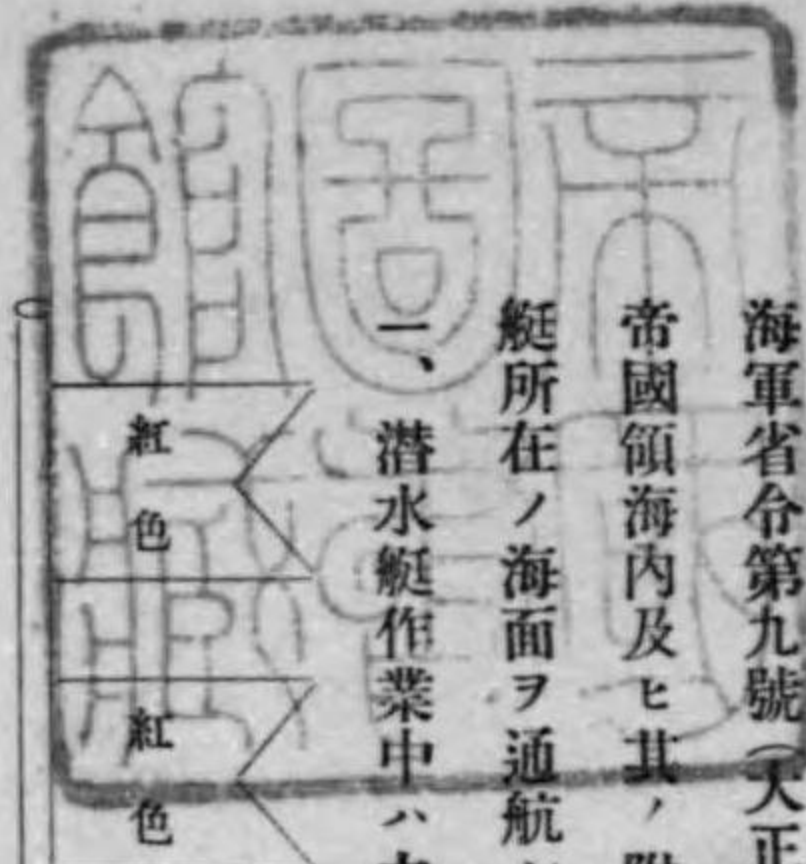 海軍省令第九號（大正
帝國領海內及ヒ其ノ附
艇所在ノ海面ヲ通航
一、潜水艇作業中ハ
紅色
紅色